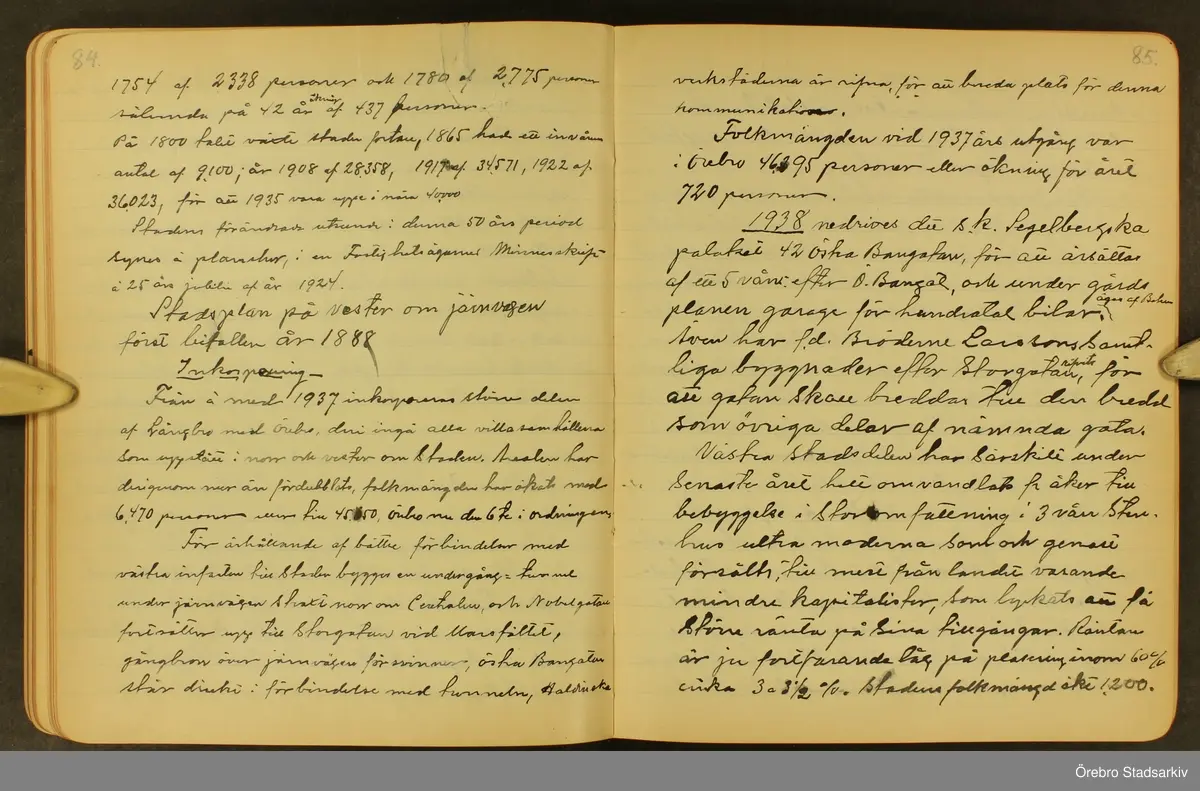 84.
1754 af 2338 personer och 1780 af 2,775 personer
sålunda på 42 år ökning af 437 personer.
På 1800 talet växte staden fortare, 1865 hade ett invånare
antal af 9,100; år 1908 af 28,358, 1917 af 34,571, 1922 af
36,023, för att 1935 vara uppe i nära 40,000
Stadens förändrade utseende i denna 50 års period
synes å planscher, i en Fastighetsägarnes Minnesskrift
å 25 års jubilé af år 1924.
Stadsplan på vester om järnvägen
först bifallen år 1888
Inkorporering
Från å med 1937 inkorporeras större delen
af Längbro med Örebro, deri ingå alla villasamhällena
som uppstått i norr och vester om Staden. Arealen har
derigenom mer än fördubblats, folkmängden har ökats med
6,470 personer till 45,  50, Örebro nu den 6te i ordningen
För erhållande af bättre förbindelser med
västra infarten till Staden bygges en undergång = tunnel
under järnvägen strax norr om Centralen, och Nobelgatan
fortsätter upp till Storgatan vid Marsfältet,
gångbron över järnvägen försvinner, östra Bangatan
står direkt i förbindelse med tunneln,
85.
verkstäderna är rifna, för att bereda plats för denna
kommunikation.
Folkmängden vid 1937 års utgång var
i Örebro 46,395 personer eller ökning för året
720 personer.
1938 nedrives det s.k. Segelbergska
palatset 42 Östra Bangatan, för att ersättas
af ett 5 vån. efter Ö. Bangat, och under gårds
planen garage för hundratal bilar. äges af Bohm
Även har f.d. Bröderne Larssons samt-
liga byggnader efter Storgatan, rifvits för
att gatan skall breddas till den bredd
som övriga delar af nämnda gata.
Västra stadsdelen har särskilt under
senaste året helt omvandlats fr åker till
bebyggelse i stor omfattning i 3 vån Sten-
hus ultra moderna som och genast
försålts, till mest från landet varande
mindre kapitalister, som lyckats att få
större ränta på sina tillgångar. Räntan
är ju fortfarande låg på placering inom 60 %
cirka 3 a 3½ %. Stadens folkmängd ökt 1,200.
Örebro Stadsarkiv